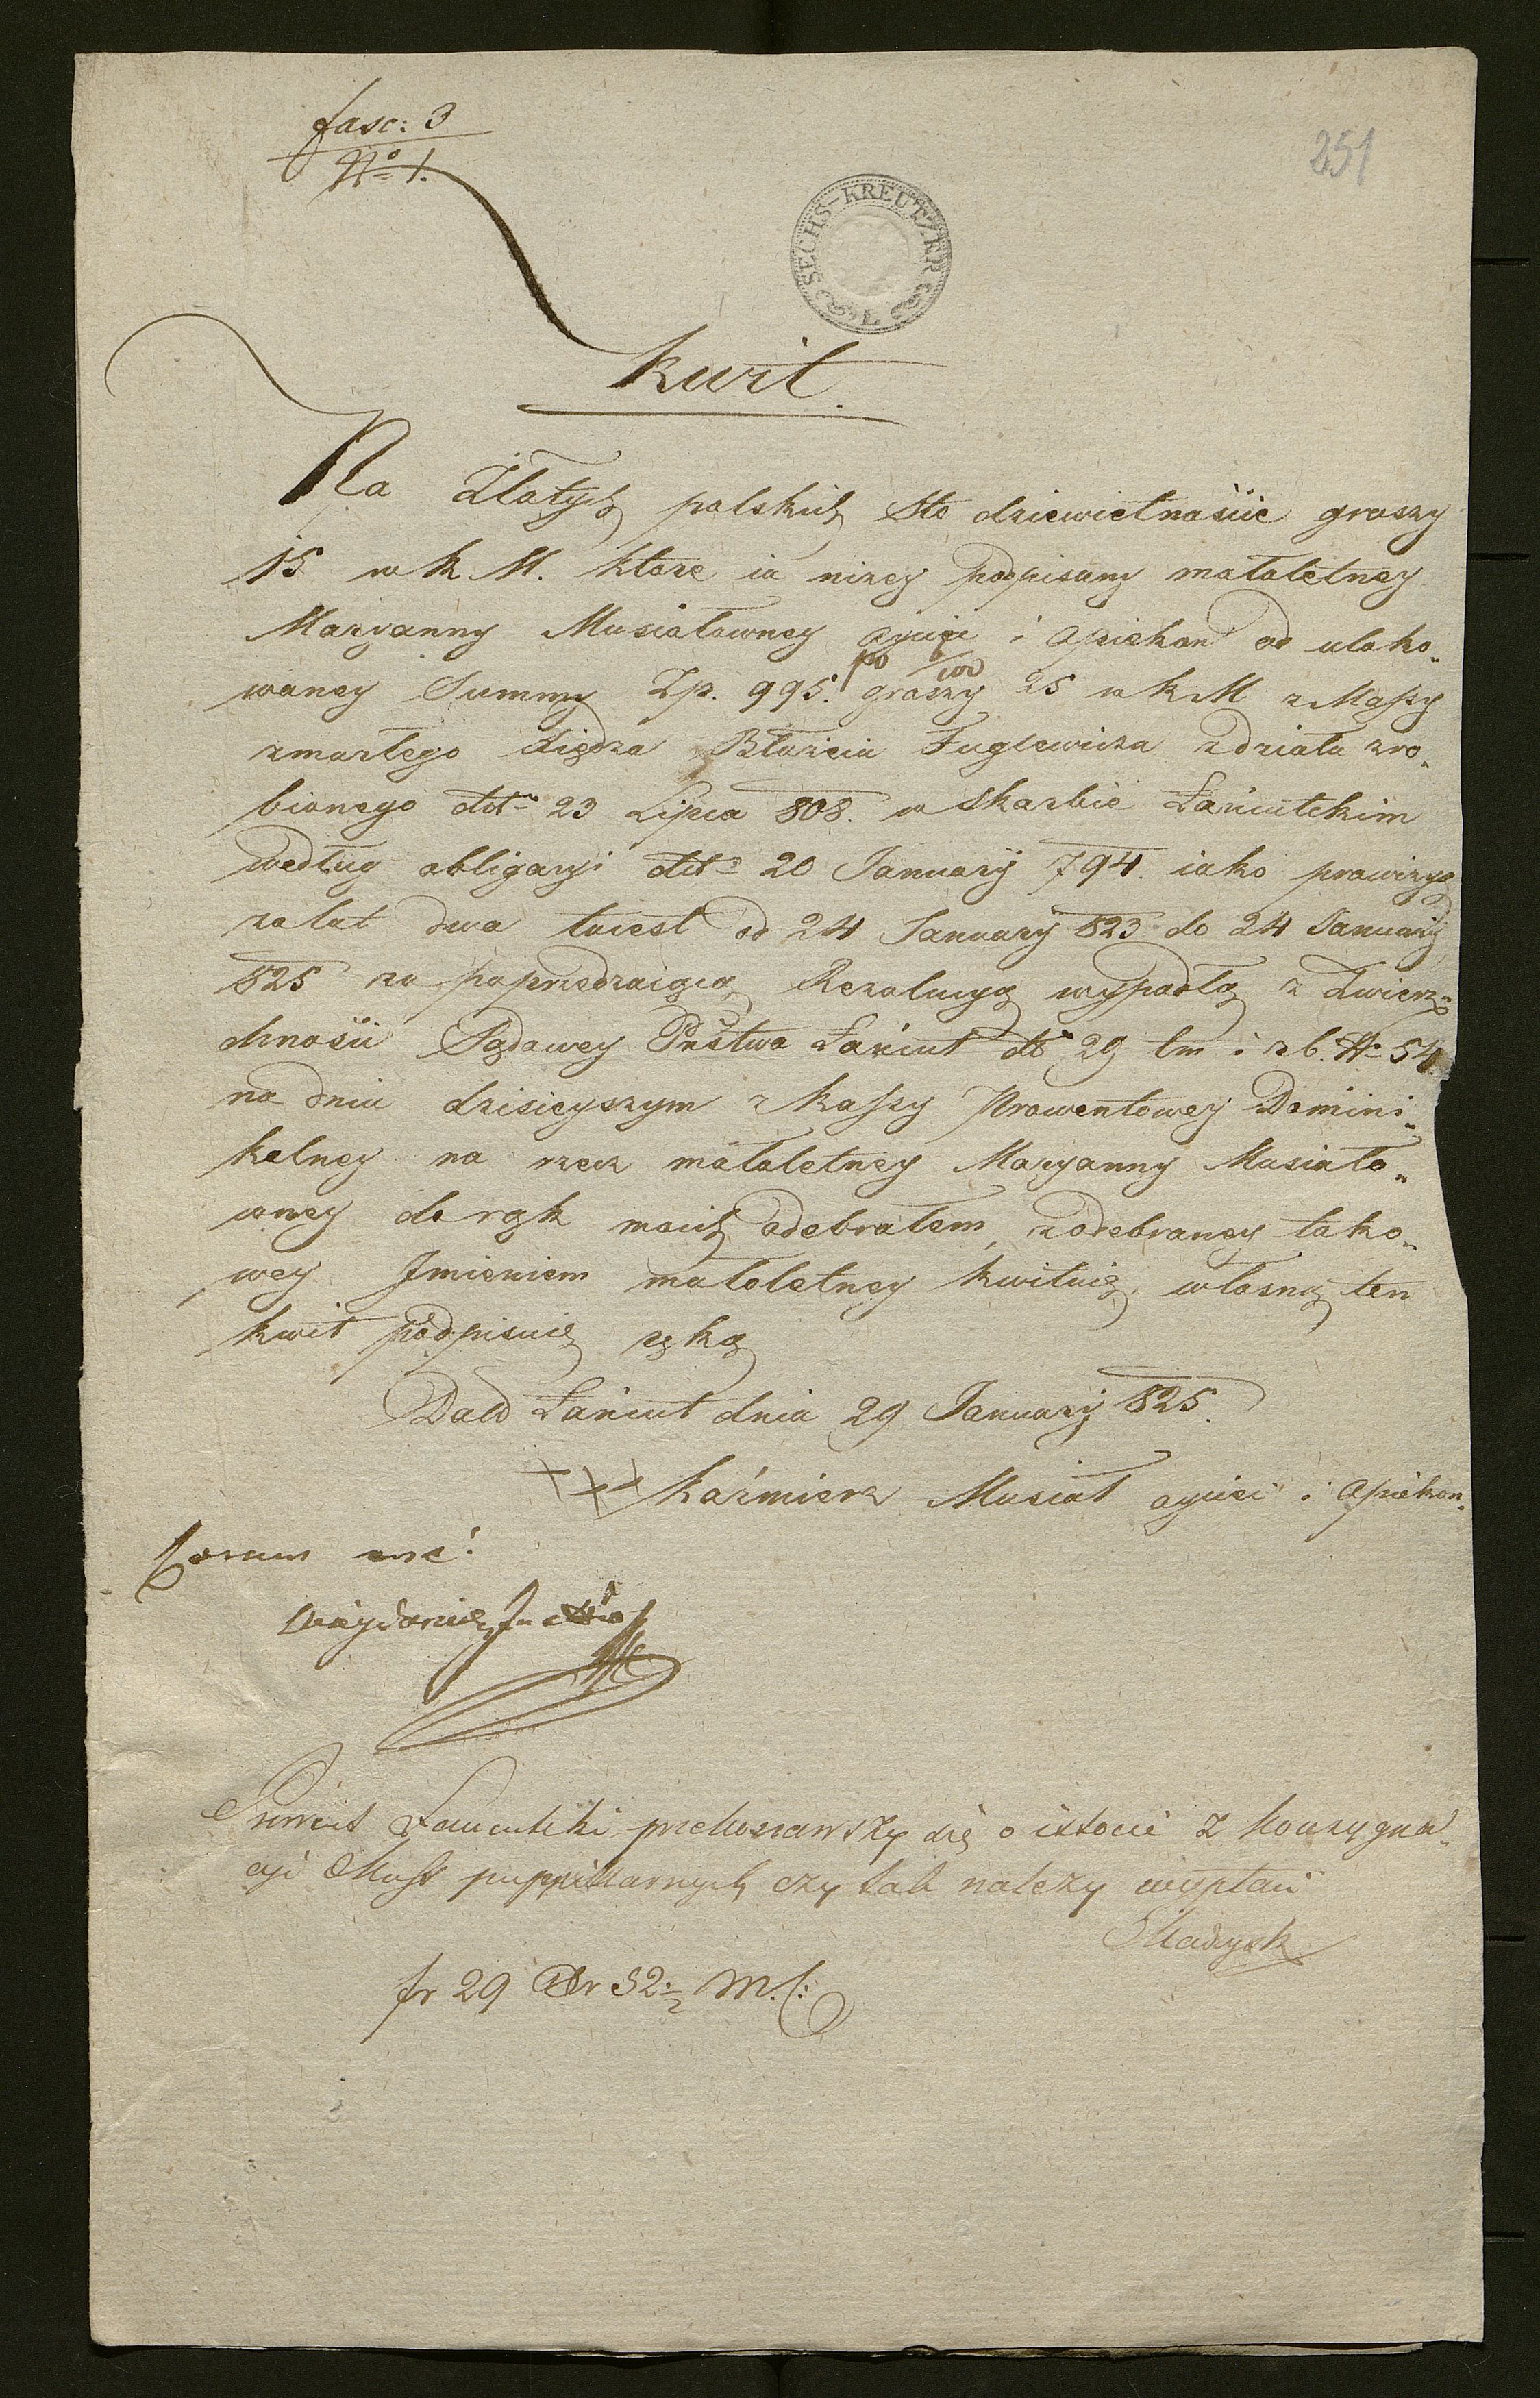 fasc: 3
No 1.
251
SECHS-KREUTZER
L
Kwit
Na Złotych polskich Sto dziewietnaście groszy
15 w k. M. które ia niżey podpisany małoletney
Maryanny Musiałowney oyciec i Opiekon od uloko„
po 6/100
waney Summy Zp. 995. groszy 25 w k M z Massy
zmarłego Xiędza Błażeia Fuglewicza z działu zro„
bionego ddto 23 Lipca 808. w Skarbie Łańcutskim
według obligacyi ddto 20 January 794. iako prowizyą
za lat dwa toiest od 24 January 823 do 24 January
825 za poprzedzaiącą Rezolucyą wypadłą z Zwierz„
chności Sądowey Pństwa Łańcut dto 29 tm i rb. Nr 54
na dniu dzisieyszym z Kassy Prowentowey Domini„
kalney na rzecz małoletney Maryanny Musiało„
wney do rąk moich odebrałem, z odebraney tako„
wey Jmieniem małoletney kwituię, własną ten
kwit podpisuię ręką
Datd Łańcut dnia 29 January 825.
+++ Kaźmierz Musiał oyciec i Opiekon.
Coram me:
Prowent Łańcutski przekonawszy się o istocie z konsygna„
cyi Mass pupillarnych czy tak należy wypłaci
SMadeysk
fr 29 Xr 52 2/4 M. C: